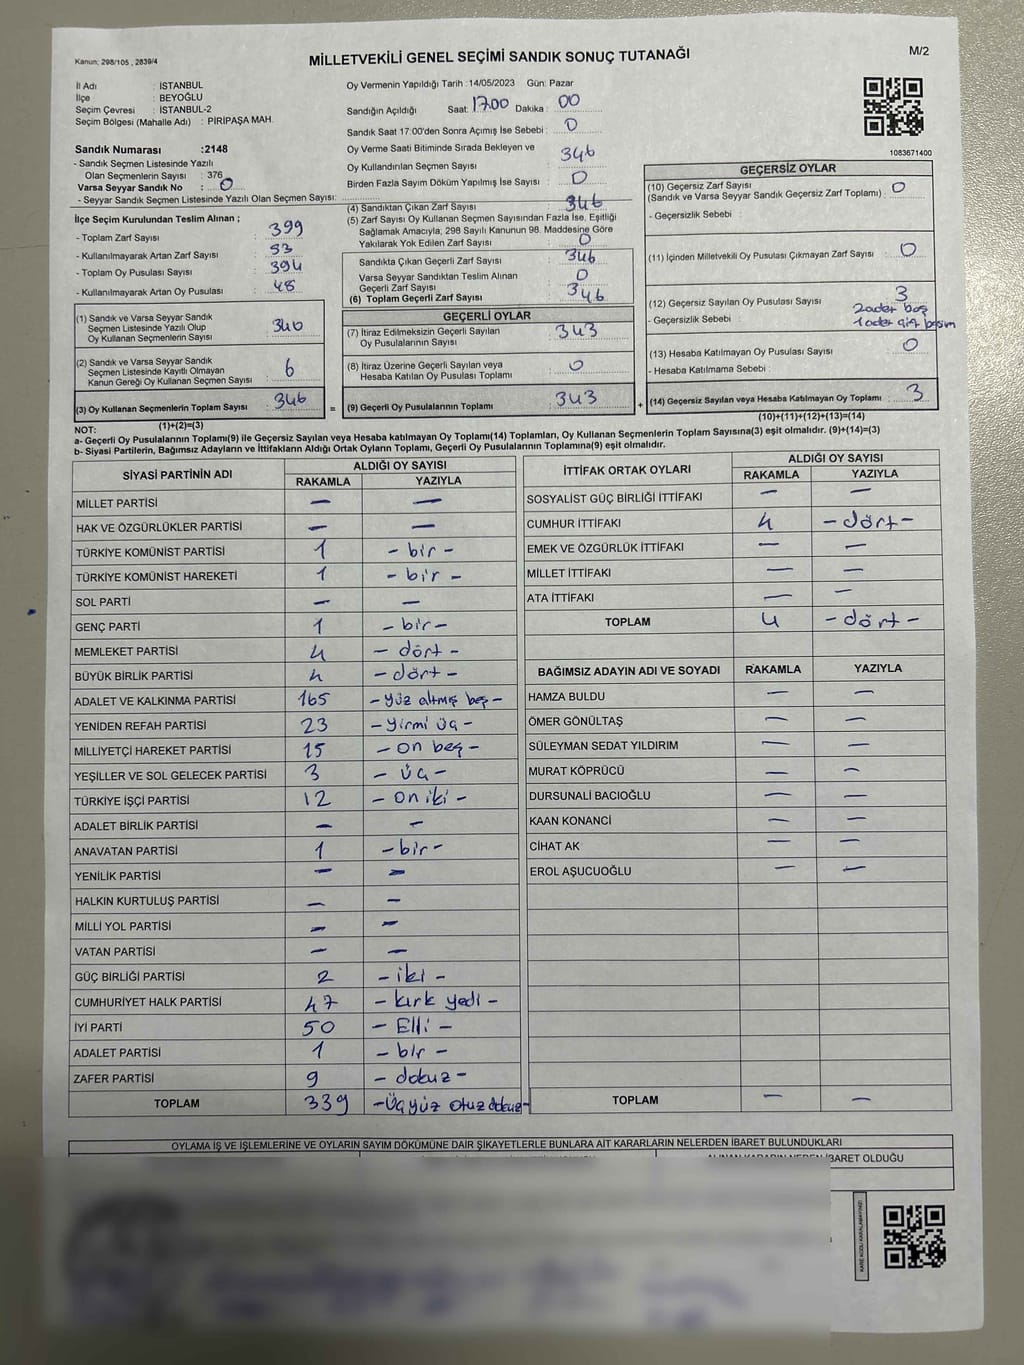 Kanun; 298/105 , 2839/4
MİLLETVEKİLİ GENEL SEÇİMİ SANDIK SONUÇ TUTANAĞI
M/2
İl Adı : İSTANBUL
İlçe : BEYOĞLU
Seçim Çevresi : İSTANBUL-2
Seçim Bölgesi (Mahalle Adı) : PİRİPAŞA MAH.
Sandık Numarası :2148
- Sandık Seçmen Listesinde Yazılı
Olan Seçmenlerin Sayısı : 376
Varsa Seyyar Sandık No : 0
- Seyyar Sandık Seçmen Listesinde Yazılı Olan Seçmen Sayısı:
İlçe Seçim Kurulundan Teslim Alınan ;
- Toplam Zarf Sayısı : 399
- Kullanılmayarak Artan Zarf Sayısı : 53
- Toplam Oy Pusulası Sayısı : 394
- Kullanılmayarak Artan Oy Pusulası : 48
(1) Sandık ve Varsa Seyyar Sandık
Seçmen Listesinde Yazılı Olup
Oy Kullanan Seçmenlerin Sayısı : 340
(2) Sandık ve Varsa Seyyar Sandık
Seçmen Listesinde Kayıtlı Olmayan
Kanun Gereği Oy Kullanan Seçmen Sayısı : 6
(3) Oy Kullanan Seçmenlerin Toplam Sayısı : 346
(1)+(2)=(3)
Oy Vermenin Yapıldığı Tarih :14/05/2023 Gün: Pazar
Sandığın Açıldığı Saat: 17.00 Dakika : 00
Sandık Saat 17:00'den Sonra Açımış İse Sebebi : 0
Oy Verme Saati Bitiminde Sırada Bekleyen ve
Oy Kullandırılan Seçmen Sayısı : 346
Birden Fazla Sayım Döküm Yapılmış İse Sayısı : 0
(4) Sandıktan Çıkan Zarf Sayısı : 346
(5) Zarf Sayısı Oy Kullanan Seçmen Sayısından Fazla İse, Eşitliği
Sağlamak Amacıyla; 298 Sayılı Kanunun 98. Maddesine Göre
Yakılarak Yok Edilen Zarf Sayısı : 0
Sandıkta Çıkan Geçerli Zarf Sayısı : 346
Varsa Seyyar Sandıktan Teslim Alınan
Geçerli Zarf Sayısı : 0
(6) Toplam Geçerli Zarf Sayısı : 346
GEÇERLİ OYLAR
(7) İtiraz Edilmeksizin Geçerli Sayılan
Oy Pusulalarının Sayısı : 343
(8) İtiraz Üzerine Geçerli Sayılan veya
Hesaba Katılan Oy Pusulası Toplamı : 0
= (9) Geçerli Oy Pusulalarının Toplamı : 343 +
1083671400
GEÇERSİZ OYLAR
(10) Geçersiz Zarf Sayısı : 0
(Sandık ve Varsa Seyyar Sandık Geçersiz Zarf Toplamı)
- Geçersizlik Sebebi :
(11) İçinden Milletvekili Oy Pusulası Çıkmayan Zarf Sayısı : 0
(12) Geçersiz Sayılan Oy Pusulası Sayısı : 3
- Geçersizlik Sebebi : 2 adet boş
1 adet çift basım
(13) Hesaba Katılmayan Oy Pusulası Sayısı : 0
- Hesaba Katılmama Sebebi :
(14) Geçersiz Sayılan veya Hesaba Katılmayan Oy Toplamı : 3
(10)+(11)+(12)+(13)=(14)
NOT:
a- Geçerli Oy Pusulalarının Toplamı(9) ile Geçersiz Sayılan veya Hesaba katılmayan Oy Toplamı(14) Toplamları, Oy Kullanan Seçmenlerin Toplam Sayısına(3) eşit olmalıdır. (9)+(14)=(3)
b- Siyasi Partilerin, Bağımsız Adayların ve İttifakların Aldığı Ortak Oyların Toplamı, Geçerli Oy Pusulalarının Toplamına(9) eşit olmalıdır.
SİYASİ PARTİNİN ADI ALDIĞI OY SAYISI
RAKAMLA YAZIYLA
MİLLET PARTİSİ — —
HAK VE ÖZGÜRLÜKLER PARTİSİ — —
TÜRKİYE KOMÜNİST PARTİSİ 1 - bir -
TÜRKİYE KOMÜNİST HAREKETİ 1 - bir -
SOL PARTİ — —
GENÇ PARTİ 1 - bir -
MEMLEKET PARTİSİ 4 - dört -
BÜYÜK BİRLİK PARTİSİ 4 - dört -
ADALET VE KALKINMA PARTİSİ 165 - yüz altmış beş -
YENİDEN REFAH PARTİSİ 23 - yirmi üç -
MİLLİYETÇİ HAREKET PARTİSİ 15 - on beş -
YEŞİLLER VE SOL GELECEK PARTİSİ 3 - üç -
TÜRKİYE İŞÇİ PARTİSİ 12 - on iki -
ADALET BİRLİK PARTİSİ — —
ANAVATAN PARTİSİ 1 - bir -
YENİLİK PARTİSİ — —
HALKIN KURTULUŞ PARTİSİ — —
MİLLİ YOL PARTİSİ — —
VATAN PARTİSİ — —
GÜÇ BİRLİĞİ PARTİSİ 2 - iki -
CUMHURİYET HALK PARTİSİ 47 - kırk yedi -
İYİ PARTİ 50 - Elli -
ADALET PARTİSİ 1 - bir -
ZAFER PARTİSİ 9 - dokuz -
TOPLAM 339 - Üçyüz otuz dokuz -
İTTİFAK ORTAK OYLARI ALDIĞI OY SAYISI
RAKAMLA YAZIYLA
SOSYALİST GÜÇ BİRLİĞİ İTTİFAKI — —
CUMHUR İTTİFAKI 4 - dört -
EMEK VE ÖZGÜRLÜK İTTİFAKI — —
MİLLET İTTİFAKI — —
ATA İTTİFAKI — —
TOPLAM 4 - dört -
BAĞIMSIZ ADAYIN ADI VE SOYADI RAKAMLA YAZIYLA
HAMZA BULDU — —
ÖMER GÖNÜLTAŞ — —
SÜLEYMAN SEDAT YILDIRIM — —
MURAT KÖPRÜCÜ — —
DURSUNALİ BACIOĞLU — —
KAAN KONANCİ — —
CİHAT AK — —
EROL AŞUCUOĞLU — —
TOPLAM — —
OYLAMA İŞ VE İŞLEMLERİNE VE OYLARIN SAYIM DÖKÜMÜNE DAİR ŞİKAYETLERLE BUNLARA AİT KARARLARIN NELERDEN İBARET BULUNDUKLARI
ALINAN KARARIN NEDEN İBARET OLDUĞU
KARE KODU KARALAMAYINIZ!